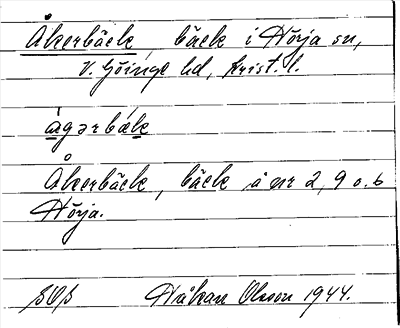 Åkerbäck, bäck i Hörja sn,
V. Göinge hd, Krist. l.
ågərbæk
Åkerbäck, bäck å nr 2, 9 o. 6
Hörja.
Håkan Olsson 1944.